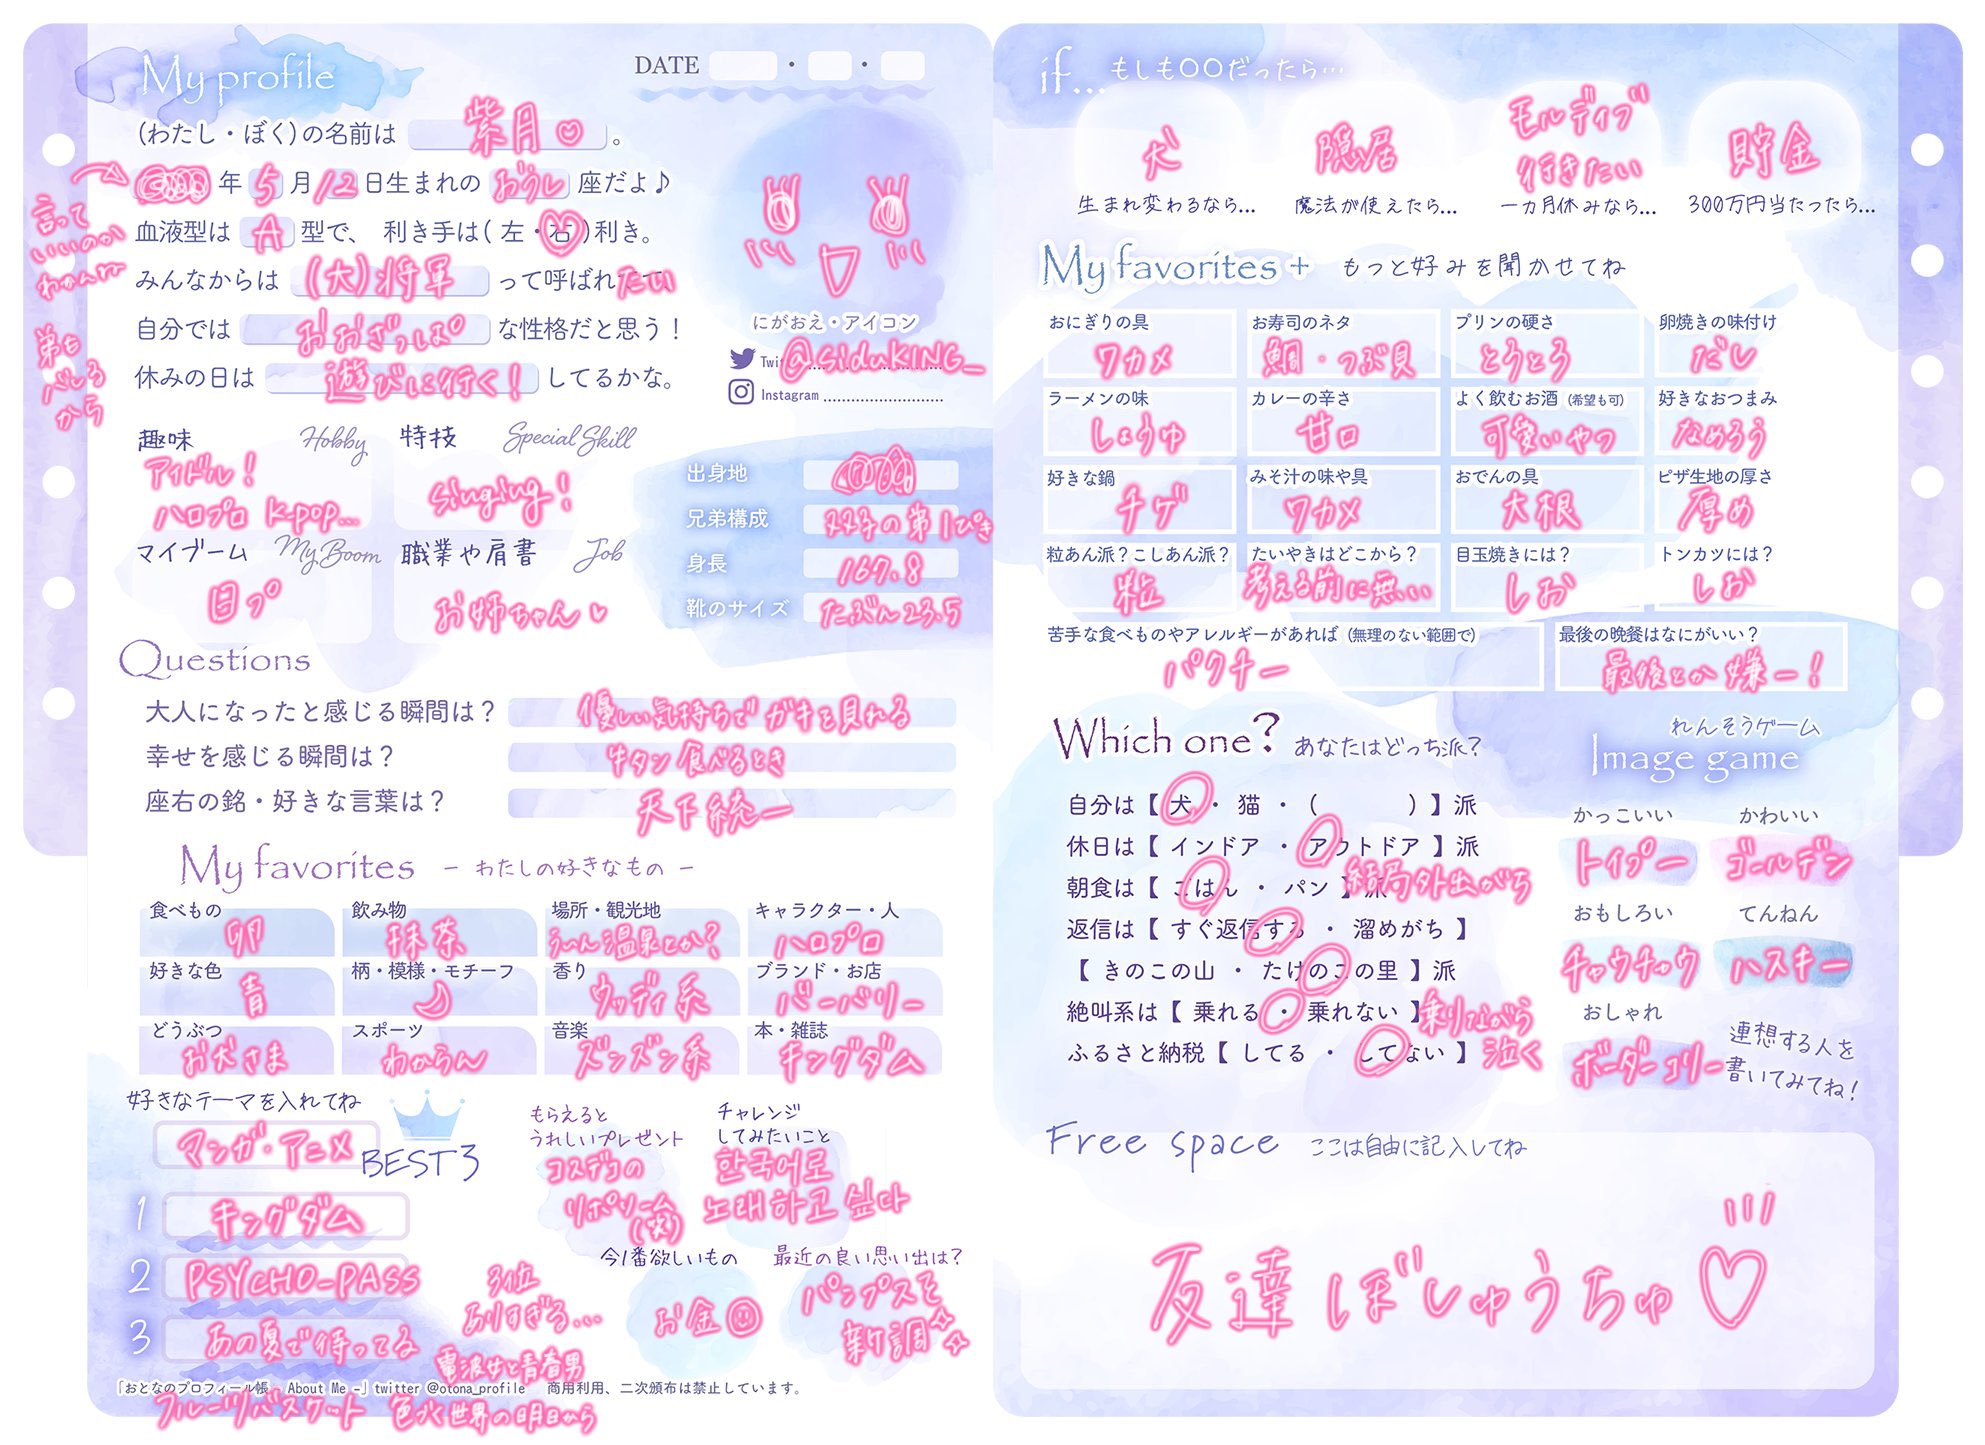 My profile
DATE ・ ・
(わたし・ぼく)の名前は 紫月♡ 。
年 5 月 12 日生まれの おうし 座だよ♪
言って
いいのか
わかんねー
弟も
バレる
から
血液型は A 型で、 利き手は( 左・右 )利き。
みんなからは (大)将軍 って呼ばれたい
自分では おおざっぱ な性格だと思う！
休みの日は 遊びに行く! してるかな。
にがおえ・アイコン
Twitter @siduKING_
Instagram
趣味 Hobby
アイドル!
ハロプロ K-pop...
特技 Special Skill
singing!
マイブーム My Boom
目つ
職業や肩書 Job
お姉ちゃん♥
出身地
兄弟構成 双子の弟1ぴき
身長 167.8
靴のサイズ たぶん23.5
Questions
大人になったと感じる瞬間は？ 優しい気持ちでガキを見れる
幸せを感じる瞬間は？ 牛タン食べるとき
座右の銘・好きな言葉は？ 天下統一
My favorites － わたしの好きなもの －
食べもの 卵
飲み物 抹茶
場所・観光地 うーん温泉とか?
キャラクター・人 ハロプロ
好きな色 青
柄・模様・モチーフ
香り ウッディ系
ブランド・お店 バーバリー
どうぶつ お犬さま
スポーツ わからん
音楽 ズンズン系
本・雑誌 キングダム
好きなテーマを入れてね
マンガ・アニメ
BEST3
1 キングダム
2 PSYCHO-PASS
3 あの夏で待ってる
3位
ありすぎる...
電波女と青春男
フルーツバスケット 色づく世界の明日から
もらえると
うれしいプレゼント
コスデコの
リポソーム
(笑)
チャレンジ
してみたいこと
한국어로
노래하고 싶다
今1番欲しいもの
お金
最近の良い思い出は?
パンプスを
新調
「おとなのプロフィール帳 About Me -」twitter @otona_profile 商用利用、二次頒布は禁止しています。
if... もしも〇〇だったら…
犬
生まれ変わるなら…
隠居
魔法が使えたら…
モルディブ
行きたい
一カ月休みなら…
貯金
300万円当たったら…
My favorites + もっと好みを聞かせてね
おにぎりの具 ワカメ
お寿司のネタ 鯛・つぶ貝
プリンの硬さ とろとろ
卵焼きの味付け だし
ラーメンの味 しょうゆ
カレーの辛さ 甘口
よく飲むお酒 (希望も可) 可愛いやつ
好きなおつまみ なめろう
好きな鍋 チゲ
みそ汁の味や具 ワカメ
おでんの具 大根
ピザ生地の厚さ 厚め
粒あん派？こしあん派？ 粒
たいやきはどこから？ 考える前に無い
目玉焼きには？ しお
トンカツには？ しお
苦手な食べものやアレルギーがあれば (無理のない範囲で)
パクチー
最後の晩餐はなにがいい？
最後とか嫌ー!
Which one? あなたはどっち派？
自分は【 犬 ・ 猫 ・ ( ) 】派
休日は【 インドア ・ アウトドア 】派
結局外出がち
朝食は【 ごはん ・ パン 】派
返信は【 すぐ返信する ・ 溜めがち 】
【 きのこの山 ・ たけのこの里 】派
絶叫系は【 乗れる ・ 乗れない 】
乗りながら
泣く
ふるさと納税【 してる ・ してない 】
れんそうゲーム
Image game
かっこいい トイプー
かわいい ゴールデン
おもしろい チャウチャウ
てんねん ハスキー
おしゃれ ボーダーコリー
連想する人を
書いてみてね！
Free space ここは自由に記入してね
友達ぼしゅうちゅ♡